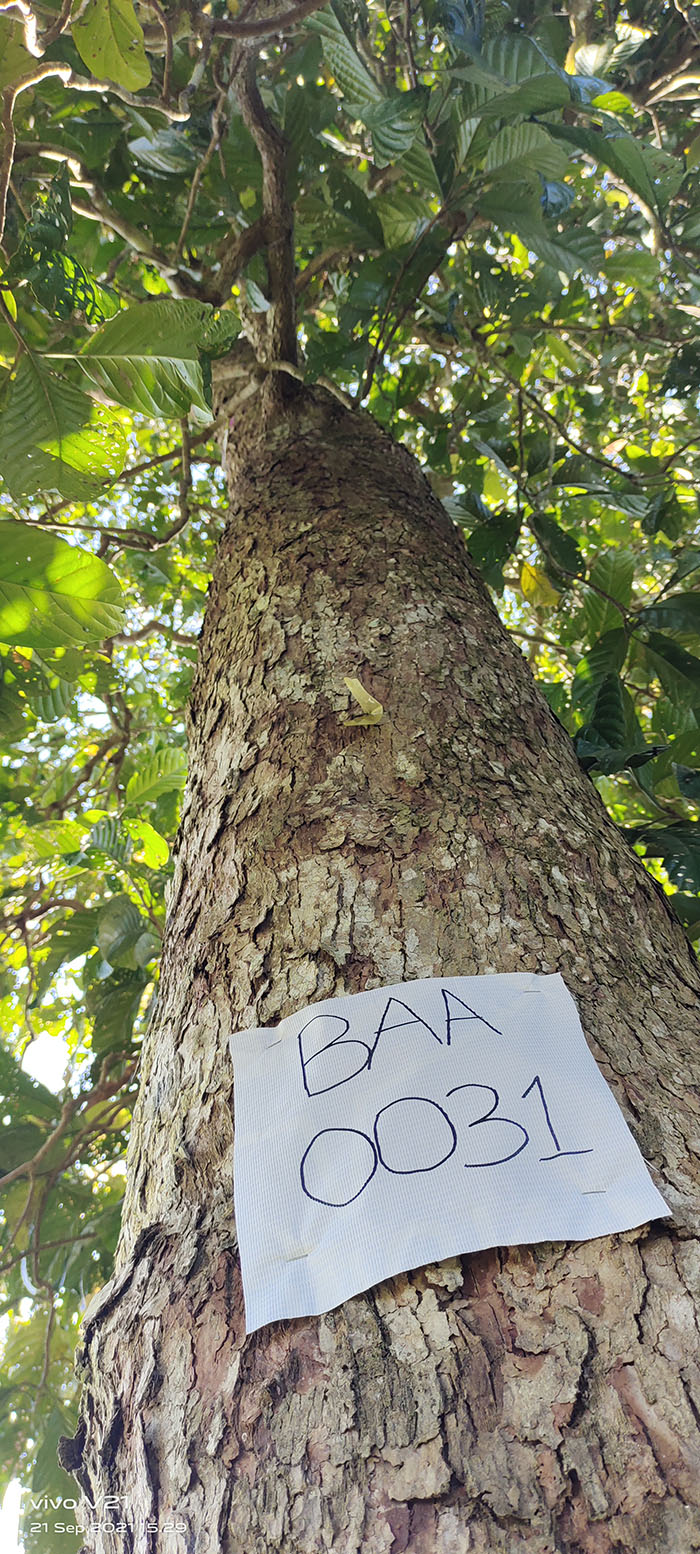 BAA
0031
vivo V21
21 Sep 2021 15:29